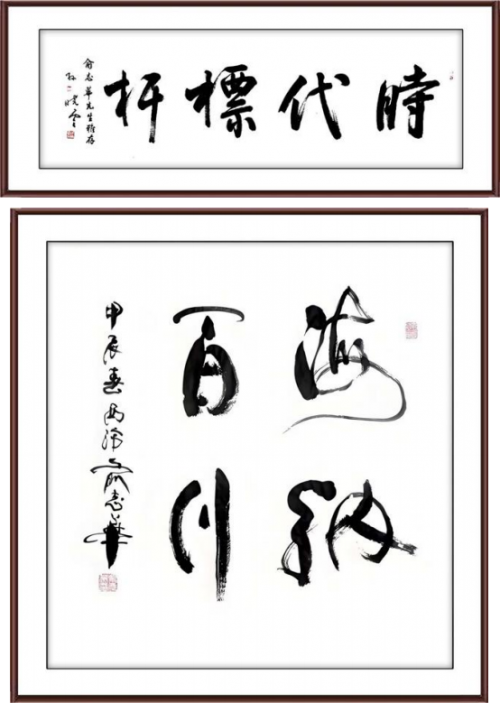 時代標杆
俞志華先生雅存
孙晓云
海納
百川
甲辰春西泠俞志華